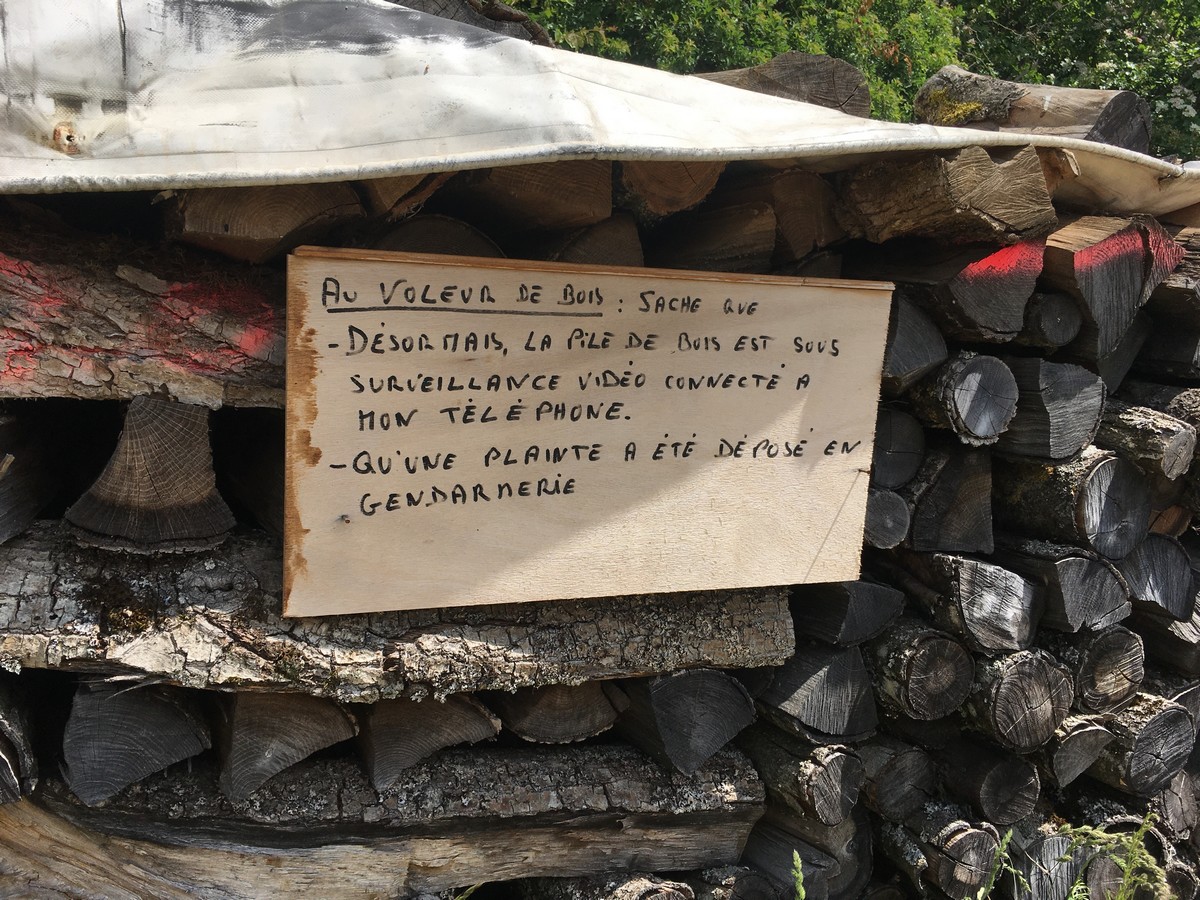 AU VOLEUR DE BOIS : SACHE QUE
- DÉSORMAIS, LA PILE DE BOIS EST SOUS
SURVEILLANCE VIDÉO CONNECTÉ A
MON TÉLÉPHONE.
- QU'UNE PLAINTE A ÉTÉ DÉPOSÉ EN
GENDARMERIE